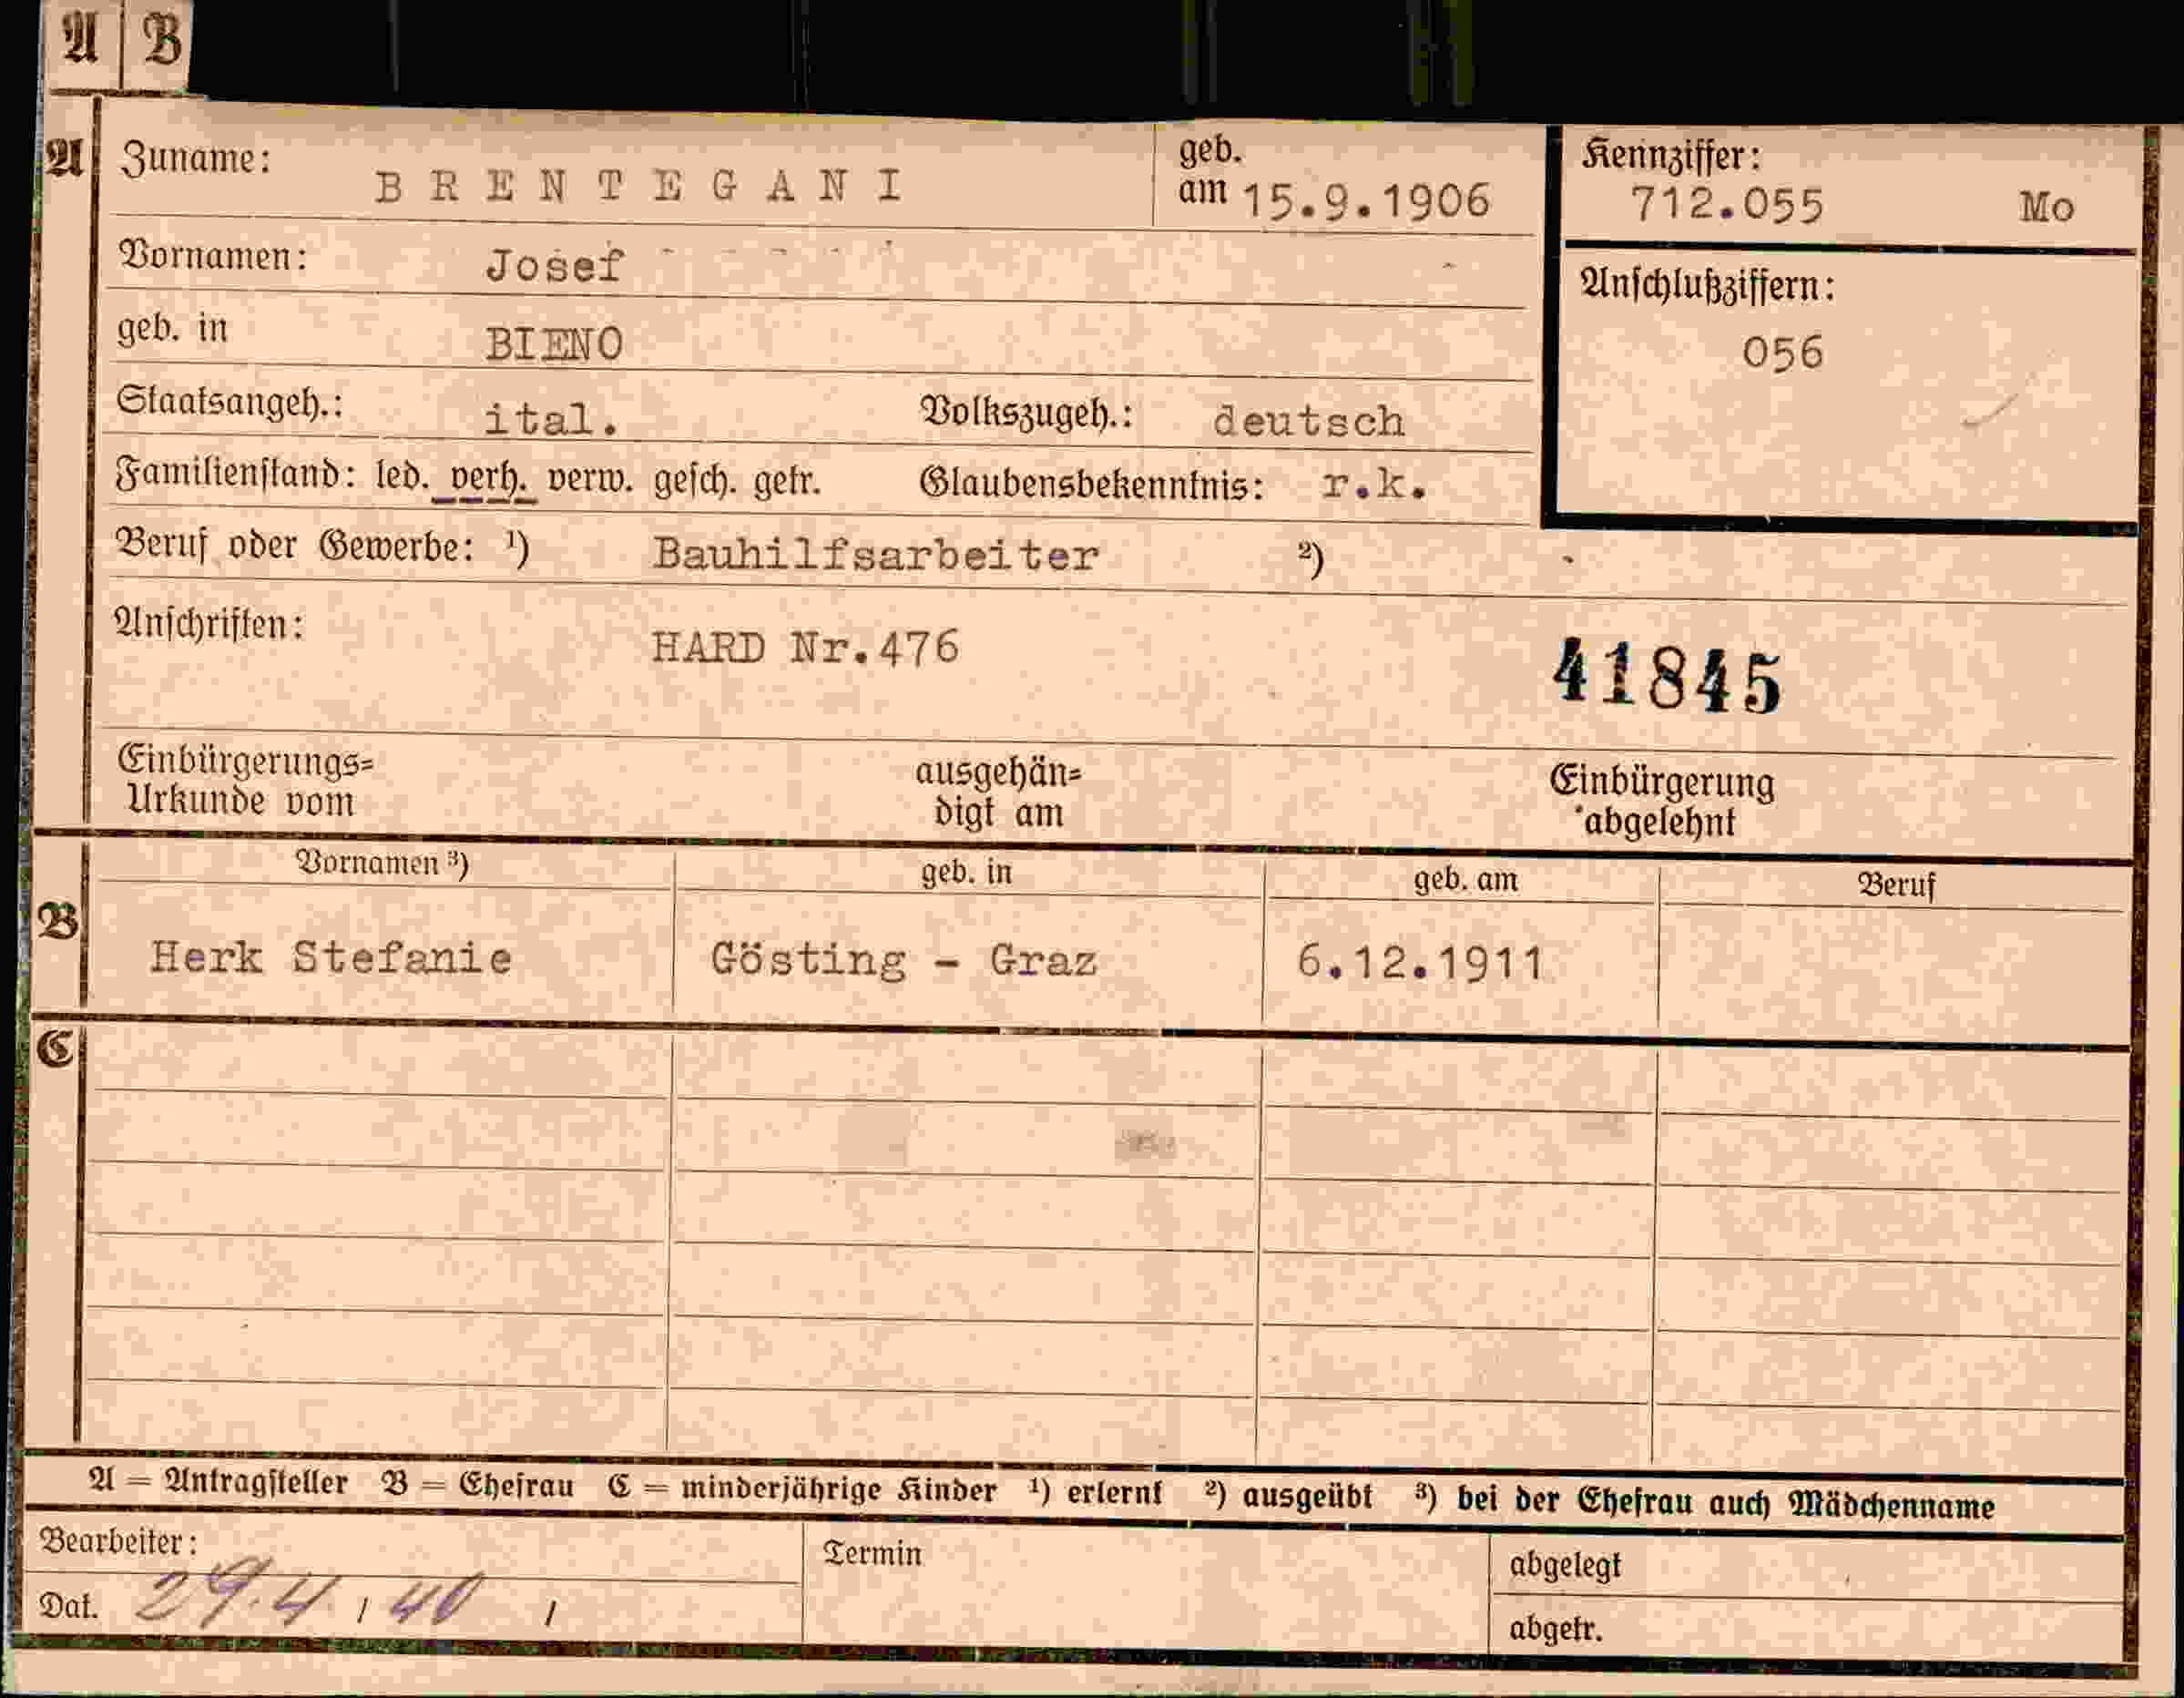 A B
A Zuname: BRENTEGANI geb. am 15.9.1906 Kennziffer: 712.055 Mo
Vornamen: Josef
Anschlußziffern: 056
geb. in BIENO
Staatsangeh.: ital. Volkszugeh.: deutsch
Familienstand: led. verh. verw. gesch. getr. Glaubensbekenntnis: r.k.
Beruf oder Gewerbe: ¹) Bauhilfsarbeiter ²)
Anschriften: HARD Nr.476 41845
Einbürgerungs= ausgehän= Einbürgerung
Urkunde vom digt am abgelehnt
Vornamen ³) geb. in geb. am Beruf
B Herk Stefanie Gösting - Graz 6.12.1911
C
A = Antragsteller B = Ehefrau C = minderjährige Kinder ¹) erlernt ²) ausgeübt ³) bei der Ehefrau auch Mädchenname
Bearbeiter: Termin abgelegt
Dat. 29.4 / 40 / abgetr.